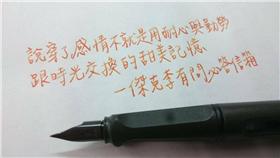 說穿了感情不就是用耐心與勤勞
跟時光交換的甜美記憶
—傑克李有問必答信箱